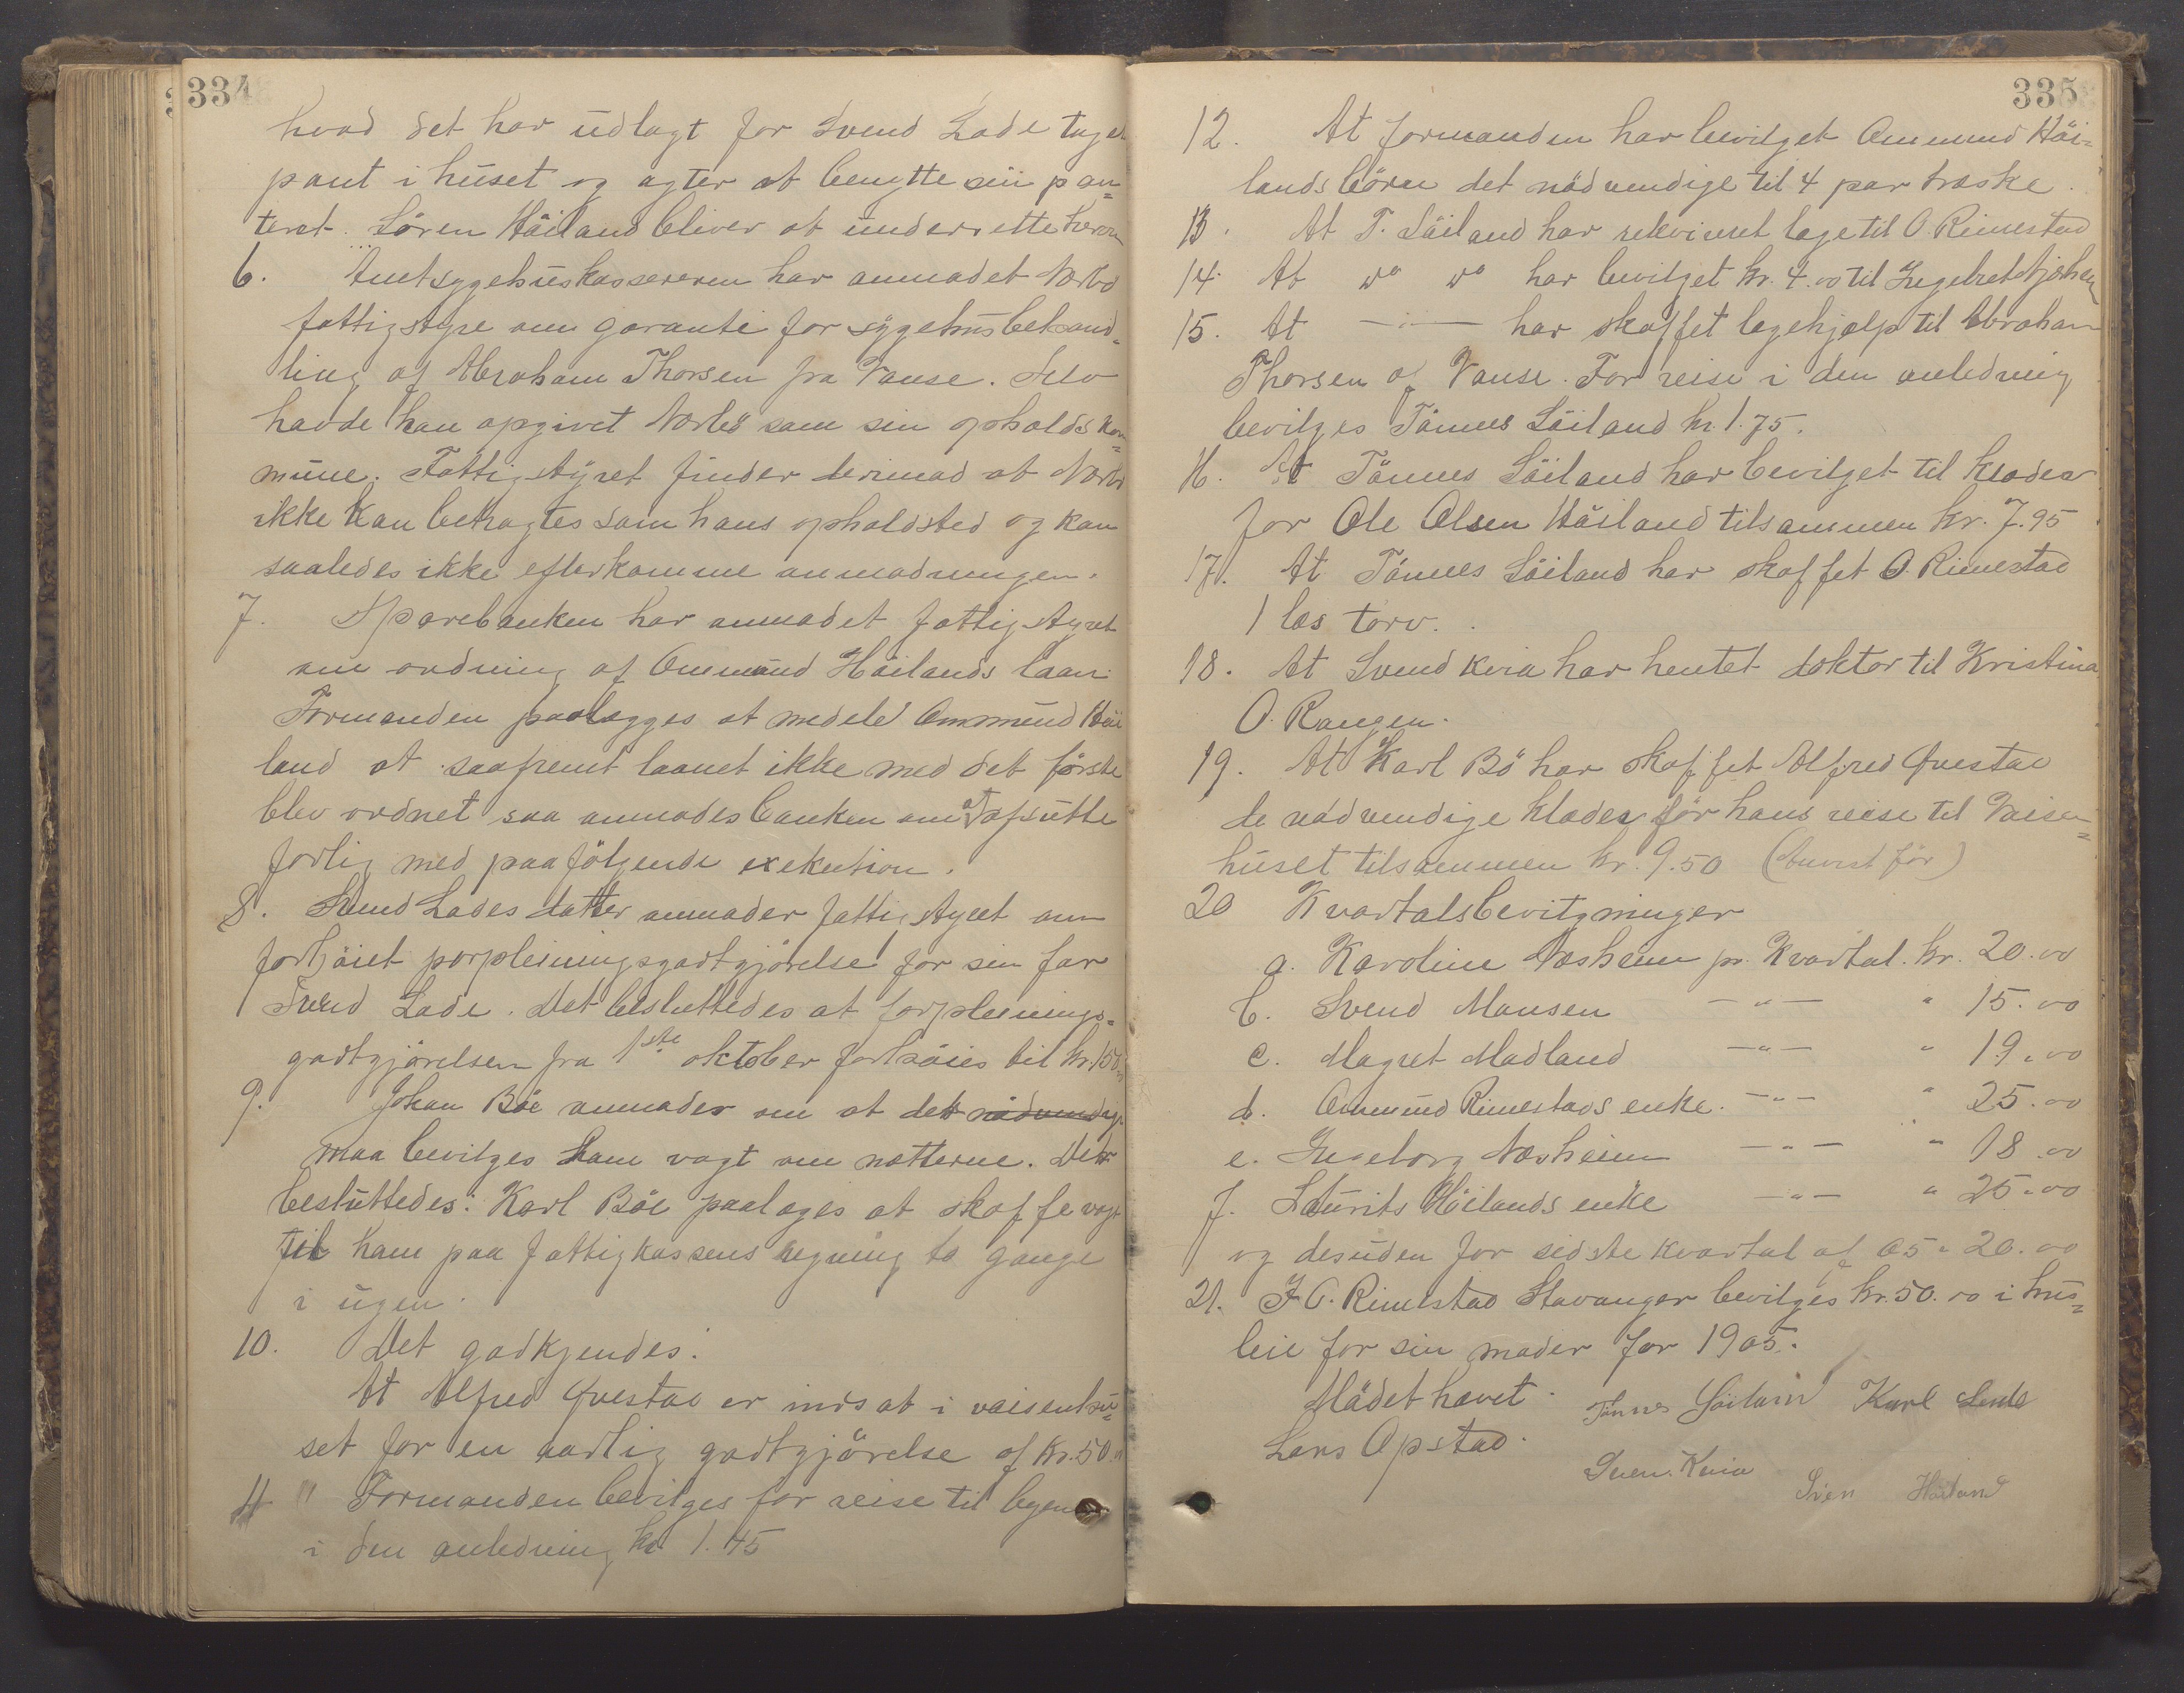 334
hvad det har udlagt for Svend Lade taget
pant i huset og agter at benytte sin pan=
teret. Sören Häiland bliver at underrette herom
6. Amtsygehuskassereren har anmodet Narbö
fattigstyre om garanti for sygehusbehand=
ling af Abraham Thorsen fra Vanse. Selv
havde han opgivet Narbö som sin opholdskom=
mune. Fattigstyret finder derimod at Narbö
ikke kan betragtes som hans opholdsted og kan
saaledes ikke efterkomme anmodningen.
7. Sparebanken har anmodet fattigstyret
om ordning af Ommund Häilands laan.
Formanden paalægges at meddele Ommund Häi
land at saafremt laanet ikke med det förste
blev ordnet saa anmodes banken om at afslutte
forlig med paafölgende exekution.
8. Svend Lades datter anmoder fattigstyret om
forhöiet forpleiningsgodtgjörelse for sin far
Svend Lade. Det besluttedes at forpleinings=
godtgjörelsen fra 1ste oktober forhöies til kr. 150.
9. Johan Böe anmoder om at det nödvendige
maa bevilges ham vagt om natterne. Det
besluttedes: Karl Böe paalages at skaffe vagt
til ham paa fattigkassens regning to gange
i ugen.
10. Det godkjendes:
At Alfred Qvestad er indsat i vaisenhu=
set for en aarlig godtgjörelse af kr. 50.
11 " Formanden bevilges for reise til byen
i den anledning kr 1.45
335
12. At formanden har bevilget Ommund Häi=
lands börn det nödvendige til 4 par træske.
13. At T. Söiland har rekvireret læge til O. Rimestad
14. At do do har bevilget kr. 4.00 til Ingebret Njærhei
15. At -"- har skaffet lægehjælp til Abraham
Thorsen af Vanse. For reise i den anledning
bevilges Tönnes Söiland kr. 1.75.
16. At Tönnes Söiland har bevilget til klæder
for Ole Olsen Häiland tilsammen kr. 7.95
17. At Tönnes Söiland har skaffet O. Rimestad
1 læs törv.
18. At Svend Kvia har hentet doktor til Kristina
O. Raugen.
19. At Karl Bö har skaffet Alfred Qvestad
de nödvendige klæder för hans reise til Vaisen=
huset tilsammen kr. 9.50 (Anvist för)
20 Kvartalsbevilgninger
a. Karoline Næsheim pr. Kvartal. kr. 20.00
b. Svend Mausen -"- " 15.00
c. Magret Madland -"- " 19.00
d. Ommund Rimestads enke. -"- " 25.00
e. Ingeborg Næsheim -"- " 18.00
f. Laurits Höilands enke -"- " 25.00
og desuden for sidste kvartal af 05 " 20.00
21. I O. Rimestad Stavanger bevilges kr. 50.00 i hus=
leie for sin moder for 1905.
Mödet hævet.
Tönnes Söiland Karl Lende
Lars Opstad.
Sven Kvia
Sören Häiland